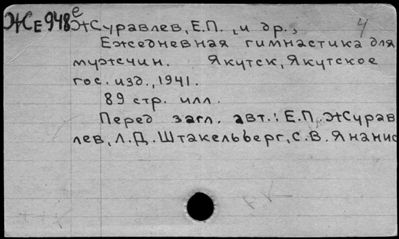 ЖЕ948е Журавлев, Е.П., и др., 4
Ежедневная гимнастика для
мужчин. Якутск, Якутское
гос. изд., 1941.
89 стр. илл.
Перед загл. авт.: Е.П. Журав
лев, Л.Д. Штакельберг, С.В. Янанис